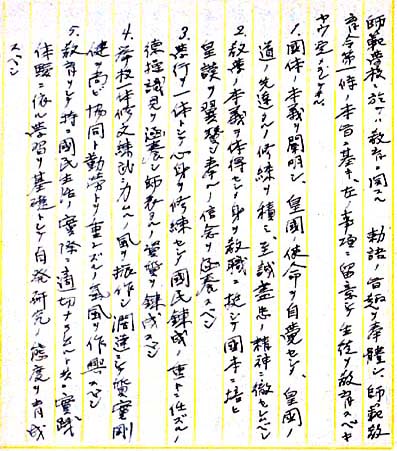 師範学校ニ於テハ教育ニ関スル 勅語ノ旨趣ヲ奉體シ師範教
育令第一條ノ本旨ニ基キ左ノ事項ニ留意シテ生徒ヲ教育スベキ
1. 國体ノ本義ヲ闡明シ皇國ノ使命ヲ自覚セシメ皇國ノ
道ノ先達タルノ修練ヲ積ミ至誠盡忠ノ精神ニ徹セシムベシ
2. 教学ノ本義ヲ体得セシメ身ヲ教職ニ挺シテ國本ニ培ヒ
皇謨ヲ翼賛シ奉ルノ信念ヲ涵養スベシ
3. 学行ヲ一体トシテ心身ヲ修練セシメ國民錬成ノ重キニ任ズルノ
徳操識見ヲ涵養シ師表タルノ資質ヲ錬成スベシ
4. 挙校一体修文練武ニ力ムルノ風ヲ振作シ濶達ニシテ質實剛
健ヲ尚ビ協同ト勤勞トヲ重ンズルノ気風ヲ作興スベシ
5. 教育ヲシテ特ニ國民生活ノ實際ニ適切ナラシムルト共ニ實踐
体験ニ依ル学習ヲ基礎トシテ自発研究ノ態度ヲ育成
スベシ